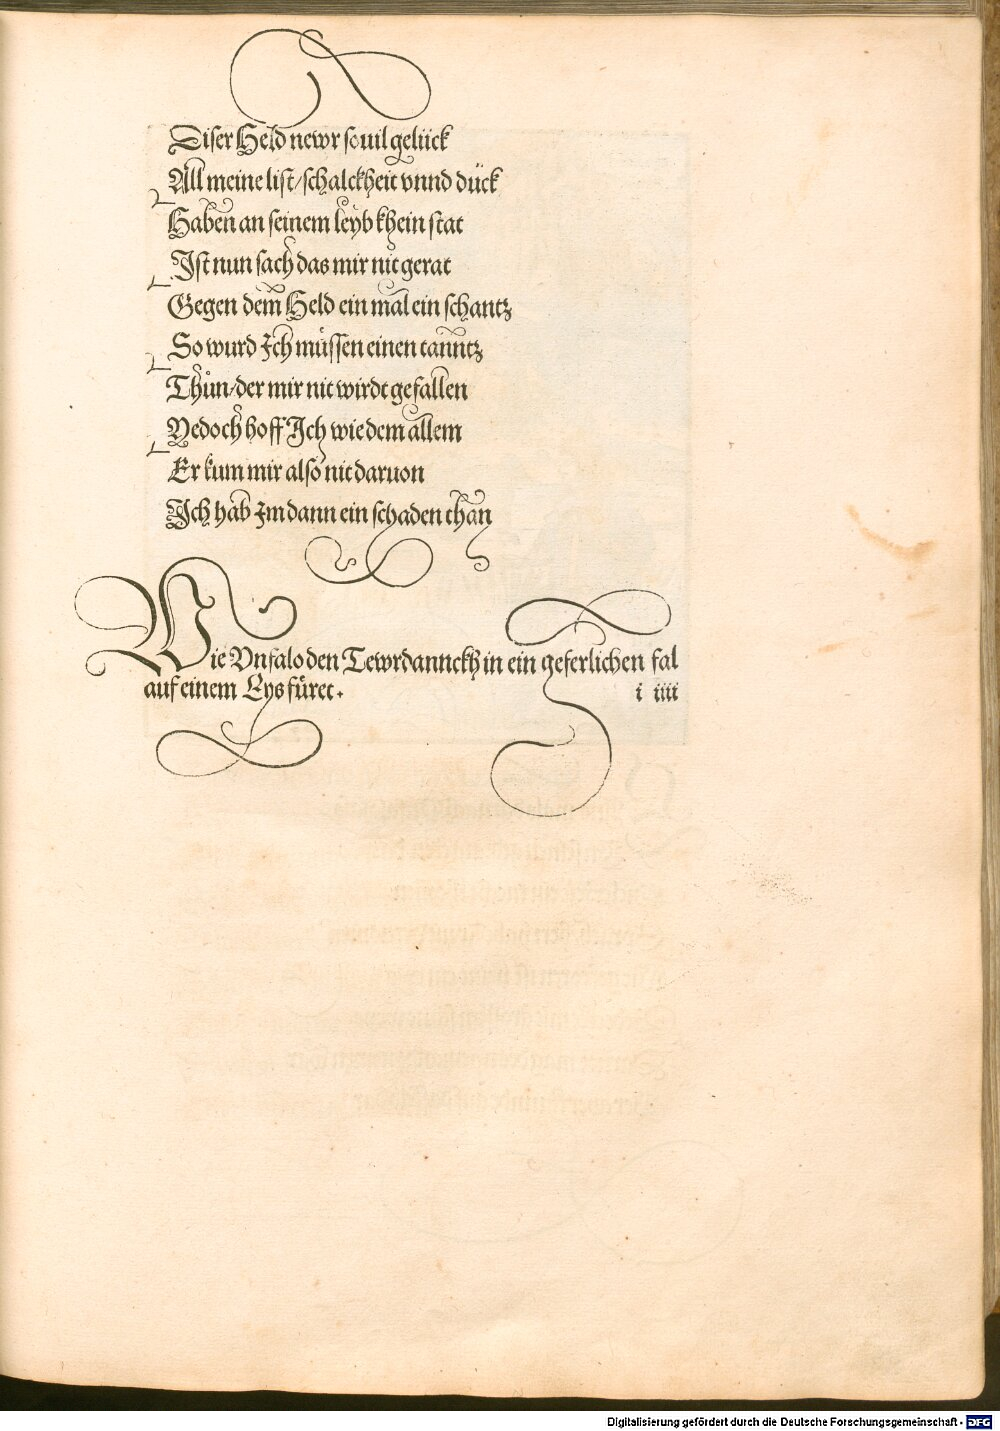 Diser Held newr souil gelück
All meine list/schalckheit vnnd dück
Haben an seinem leyb khein stat
Ist nun sach das mir nit gerat
Gegen dem Held ein mal ein schantz
So wurd Ich müssen einen tanntz
Thůn/der mir nit wirdt gefallen
Yedoch hoff Ich wie dem allem
Er kum mir also nit daruon
Ich hab Im dann ein schaden than
Wie Vnfalo den Tewrdannckh in ein geferlichen fal
auf einem Eys füret.
i iiii
Digitalisierung gefördert durch die Deutsche Forschungsgemeinschaft - DFG